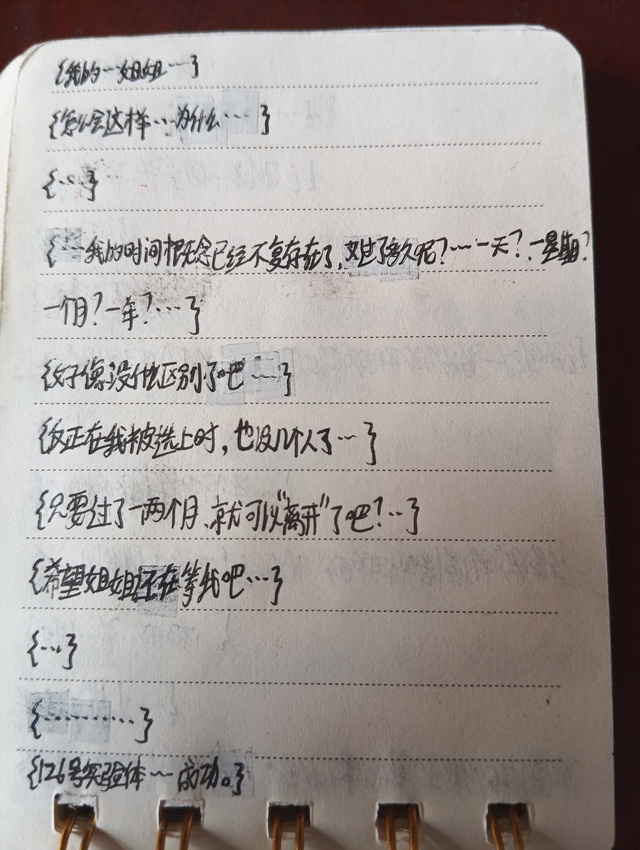 {我的…姐姐…}
{怎么会这样…为什么…}
{…}
{…我的时间概念已经不复存在了,过了多久呢?…一天?一星期?
一个月?一年?…}
{好像没什么区别了吧…}
{反正在我被选上时,也没几个人了…}
{只要过了一两个月、就可以"离开"了吧?…}
{希望姐姐还在等我吧…}
{…}
{………}
{126号实验体…成功。}